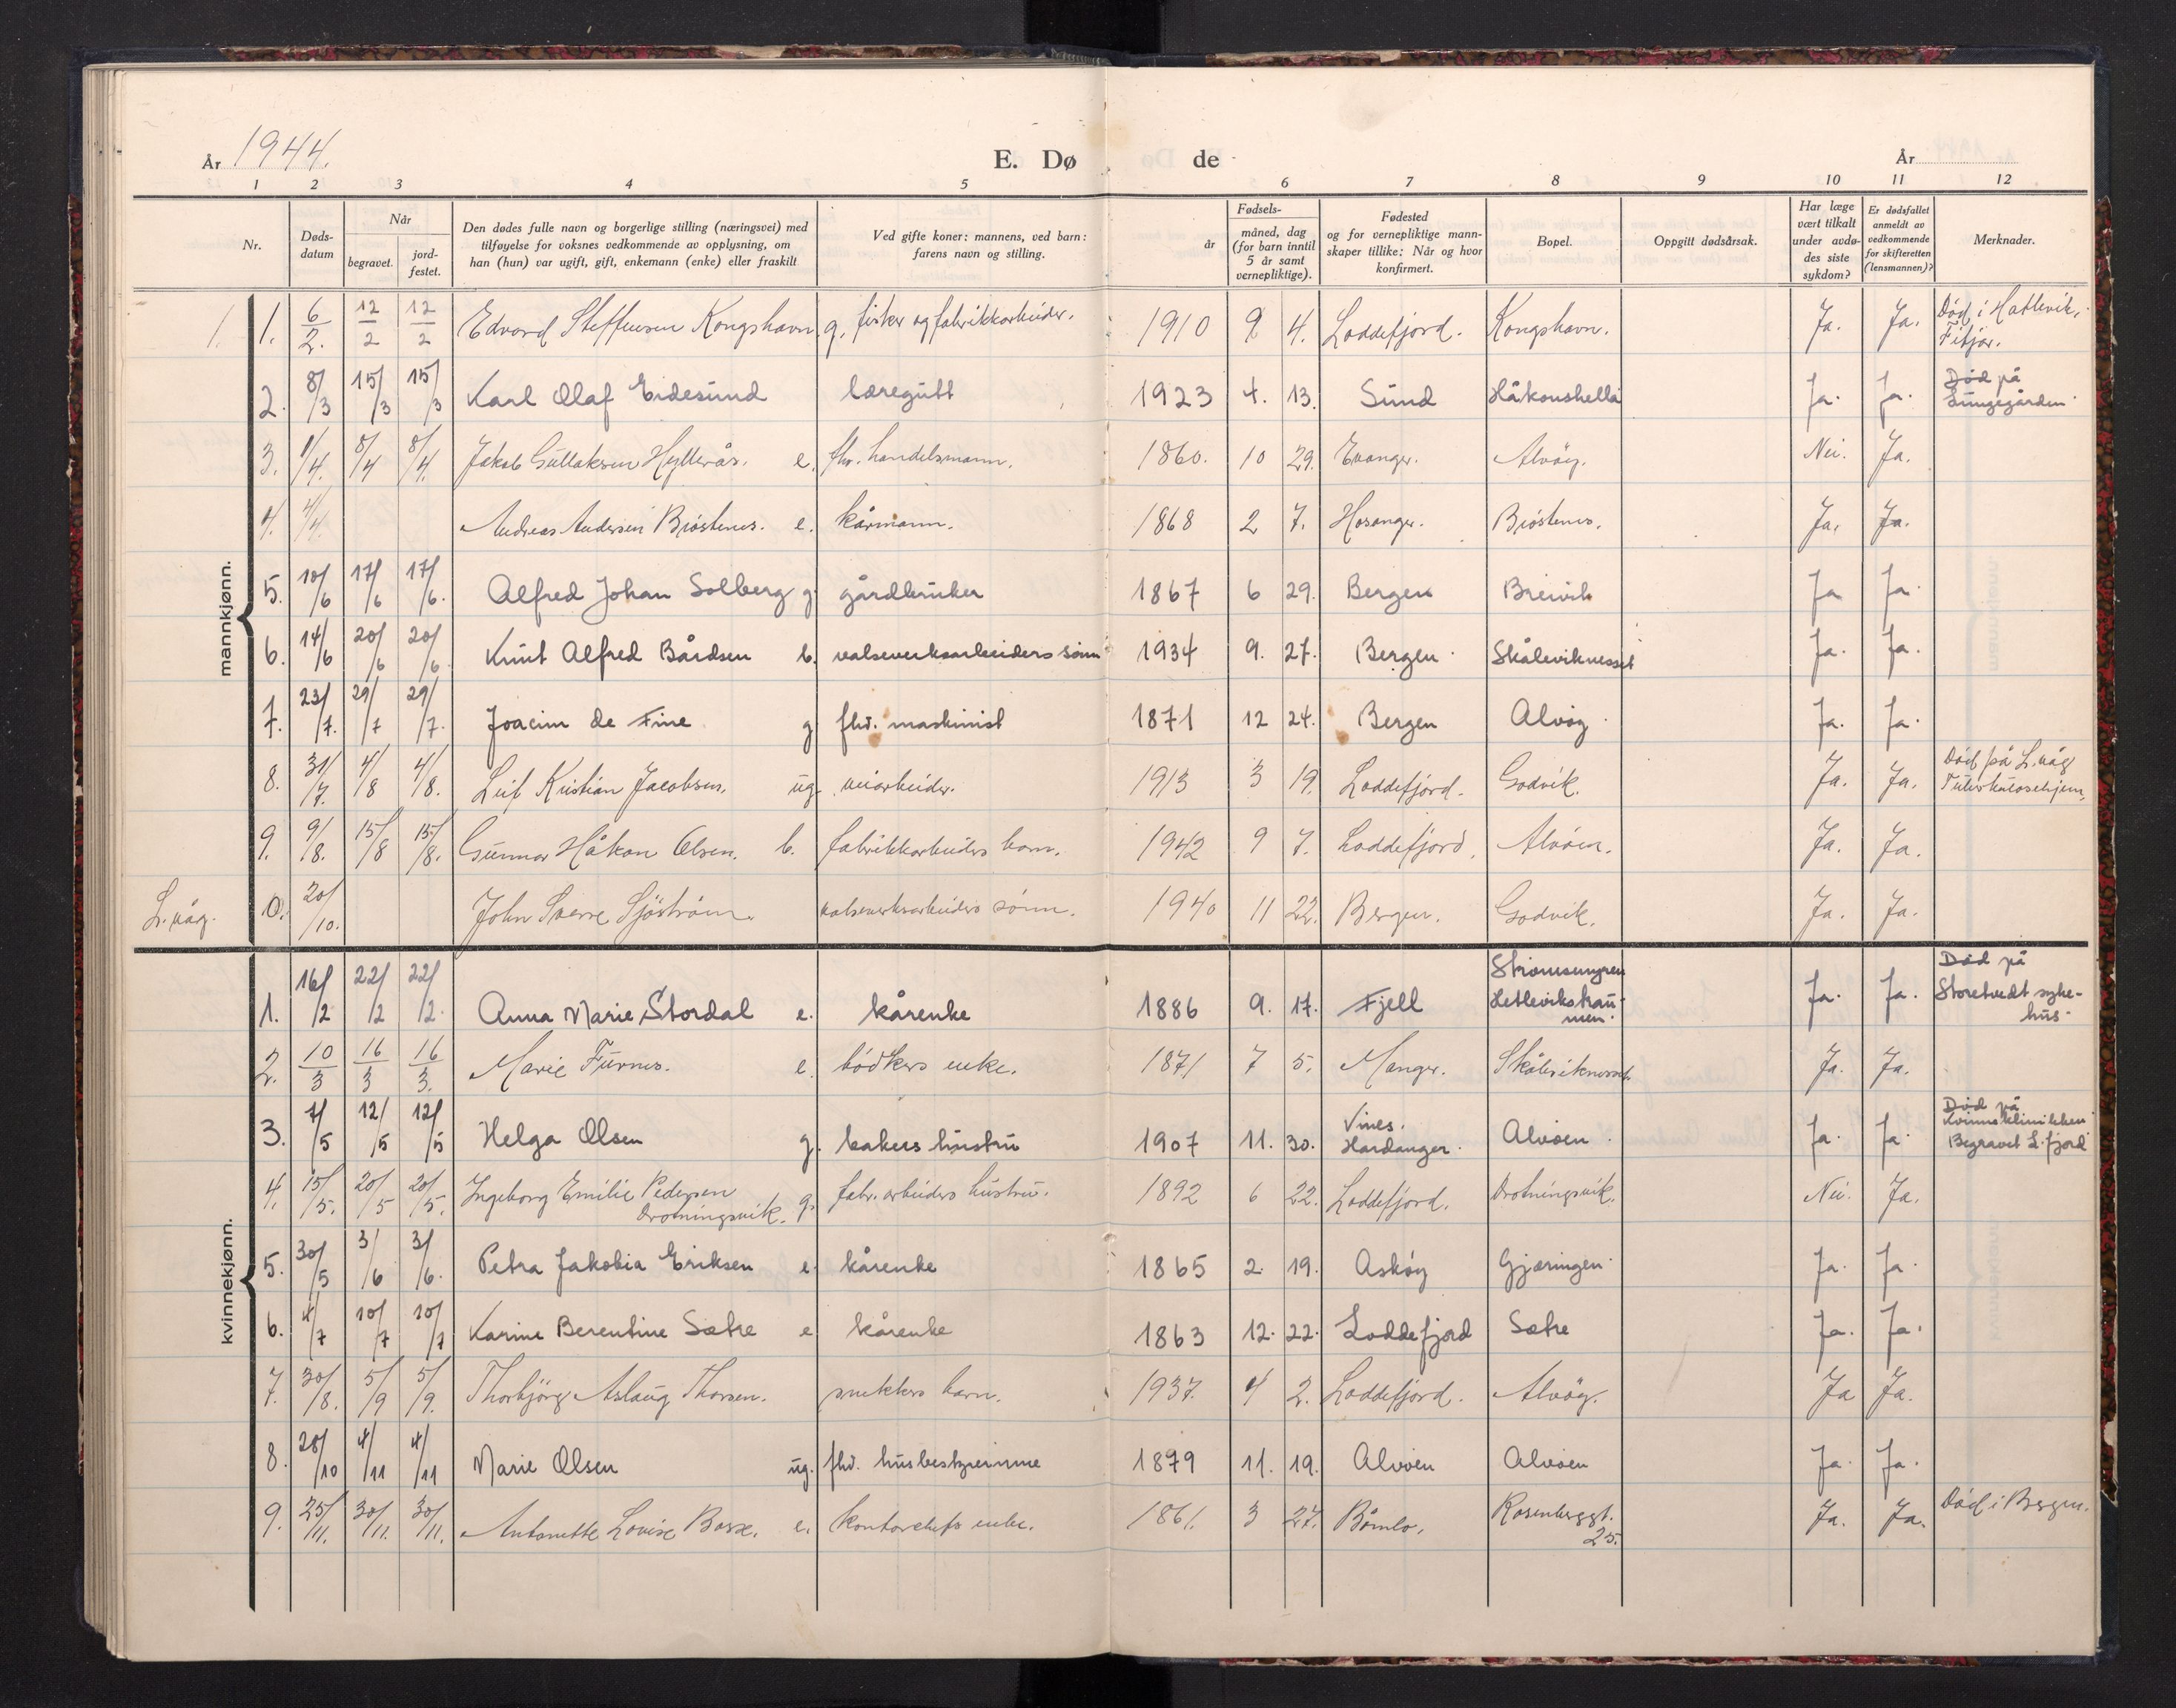 År 1944.
E. Dø de
År
1 2 3 4 5 6 7 8 9 10 11 12
Nr. Døds-datum Når begravet. jord-festet. Den dødes fulle navn og borgerlige stilling (næringsvei) med tilføyelse for voksnes vedkommende av opplysning, om han (hun) var ugift, gift, enkemann (enke) eller fraskilt Ved gifte koner: mannens, ved barn: farens navn og stilling. Fødsels- år måned, dag (for barn inntil 5 år samt vernepliktige). Fødested og for vernepliktige mann-skaper tillike: Når og hvor konfirmert. Bopel. Oppgitt dødsårsak. Har læge vært tilkalt under avdø-des siste sykdom? Er dødsfallet anmeldt av vedkommende for skifteretten (lensmannen)? Merknader.
mannkjønn.
1. 1. 6/2. 12/2 12/2 Edvard Steffensen Kongshavn g. fisker og fabrikkarbeider. 1910 9 4. Loddefjord. Kongshavn. Ja. Ja. Død i Hatlevik, Fitjar.
2. 8/3 15/3 15/3 Karl Olaf Eidesund læregutt 1923 4. 13. Sund Håkonshella Ja. Ja. Død på Lungegården.
3. 1/4. 8/4 8/4. Jakob Gullaksen Hyllerås. e. fhv. handelsmann. 1860. 10 29. Evanger. Alvøy. Nei. Ja.
4. 4/4. Andreas Andersen Brøstenes. e. kårmann. 1868 2 7. Hosanger. Brøstenes. Ja. Ja.
5. 10/6 17/6 17/6. Alfred Johan Solberg g gårdbruker 1867 6 29. Bergen Breivik Ja Ja.
6. 14/6 20/6 20/6. Knut Alfred Bårdsen b. valseverksarbeiders sønn 1934 9. 27. Bergen. Skåleviknesset Ja. Ja.
7. 23/7. 29/7 29/7. Joacim de Fine g fhv. maskinist 1871 12 24. Bergen Alvøy. Ja. Ja.
8. 31/7. 4/8 4/8. Leif Kristian Jacobsen. ug. veiarbeider. 1913 3 19. Loddefjord. Godvik. Ja. Ja. Død på L.våg Tuberkulosehjem.
9. 9/8. 15/8 15/8. Gunnar Håkon Olsen. b. fabrikkarbeiders barn. 1942 9 7. Loddefjord. Alvøen. Ja. Ja.
L.våg. 10. 20/10. John Sverre Sjöström. valseverksarbeiders sønn. 1940 11 22. Bergen. Godvik. Ja. Ja.
kvinnekjønn.
1. 16/2 22/2 22/2. Anna Marie Stordal e. kårenke 1886 9. 17. Fjell Strømsmyren Hetlevikstraumen. Ja. Ja. Død på Storetvedt sykehus.
2. 10/3 16/3 16/3. Marie Furnes. e. bødkers enke. 1871 7 5. Manger. Skåleviknesset. Ja. Ja.
3. 7/5 12/5 12/5 Helga Olsen g. bakers hustru 1907 11. 30. Vines. Hardanger. Alvøen. Ja. Ja. Død på Kvinneklinikken Begravet L.fjord
4. 15/5. 20/5 20/5. Ingeborg Emilie Pedersen Drotningsvik. g. fabr. arbeiders hustru. 1892 6 22. Loddefjord. Drotningsvik. Nei. Ja.
5. 30/5 3/6 3/6. Petra Jakobia Eriksen e. kårenke 1865 2. 19. Askøy Gjæringen. Ja. Ja.
6. 4/7 10/7 10/7 Karine Berentine Sætre e kårenke 1863 12. 22. Loddefjord Sætre Ja. Ja.
7. 30/8. 5/9 5/9. Thorbjörg Aslaug Thorsen. snekkers barn. 1937. 4 2. Loddefjord. Alvøy. Ja Ja.
8. 28/10 4/11 4/11 Marie Olsen ug. fhv. husbestyrerinne 1879 11. 19. Alvøen Alvøen Ja. Ja.
9. 25/11. 30/11. 30/11. Antonette Lovise e. kontorchefs enke. 1861. 3 27. Bømlo. Rosenberggt. 25. Ja. Ja. Død i Bergen.